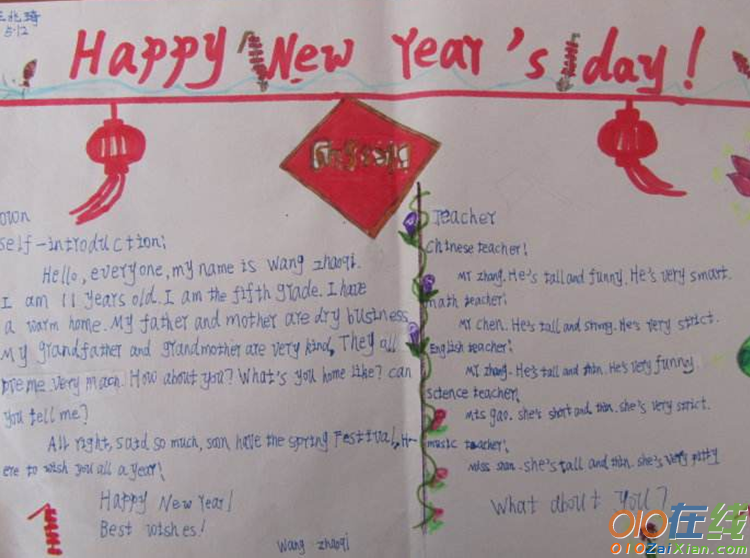 王兆琦
5.12
Happy New Year's day!
own
self-introduction:
Hello, everyone, my name is Wang zhaoqi.
I am 11 years old. I am the fifth grade. I have
a warm home. My father and mother are dry business
My grandfather and grandmother are very kind, They all
me very mach. How about you? What's you home like? can
you tell me?
All right, said so much, soon have the spring Festival, H-
ere to wish you all a year!
Happy New Year!
Best wishes!
Wang zhaoqi
Teacher
Chinese teacher:
Mr zhang. He's tall and funny. He's very smart.
math teacher:
Mr Chen. He's tall and strong. He's very strict.
English teacher:
Mr zhang. He's tall and thin. He's very funny.
science teacher:
Mis gao. she's short and thin. she's very strict.
music teacher:
Miss shan. she's tall and thin. she's very pretty
What about you?
010在线
010ZaiXian.com